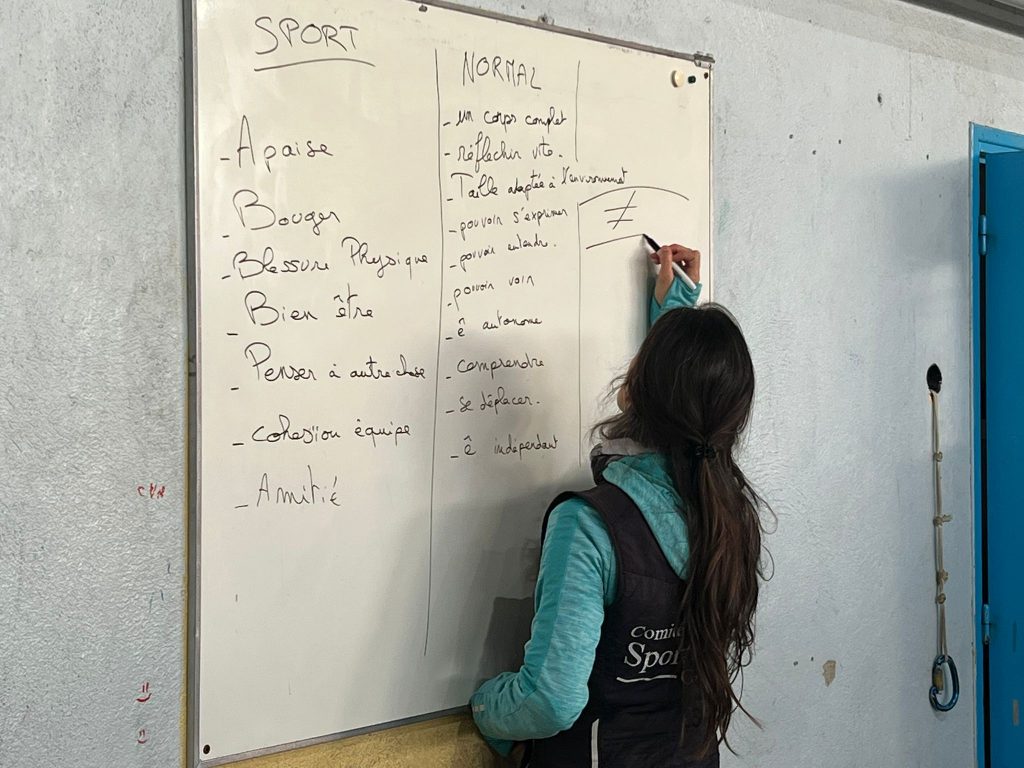 SPORT
- Apaise
- Bouger
- Blessure Physique
- Bien être
- Penser à autre chose
- cohesion équipe
- Amitié
NORMAL
- un corps complet
- réfléchir vite.
- Taille adaptée à l'environnement
- pouvoir s'exprimer
- pouvoir entendre.
- pouvoir voir
- ê autonome
- comprendre
- se déplacer.
- ê indépendant
≠
Comité
Sport